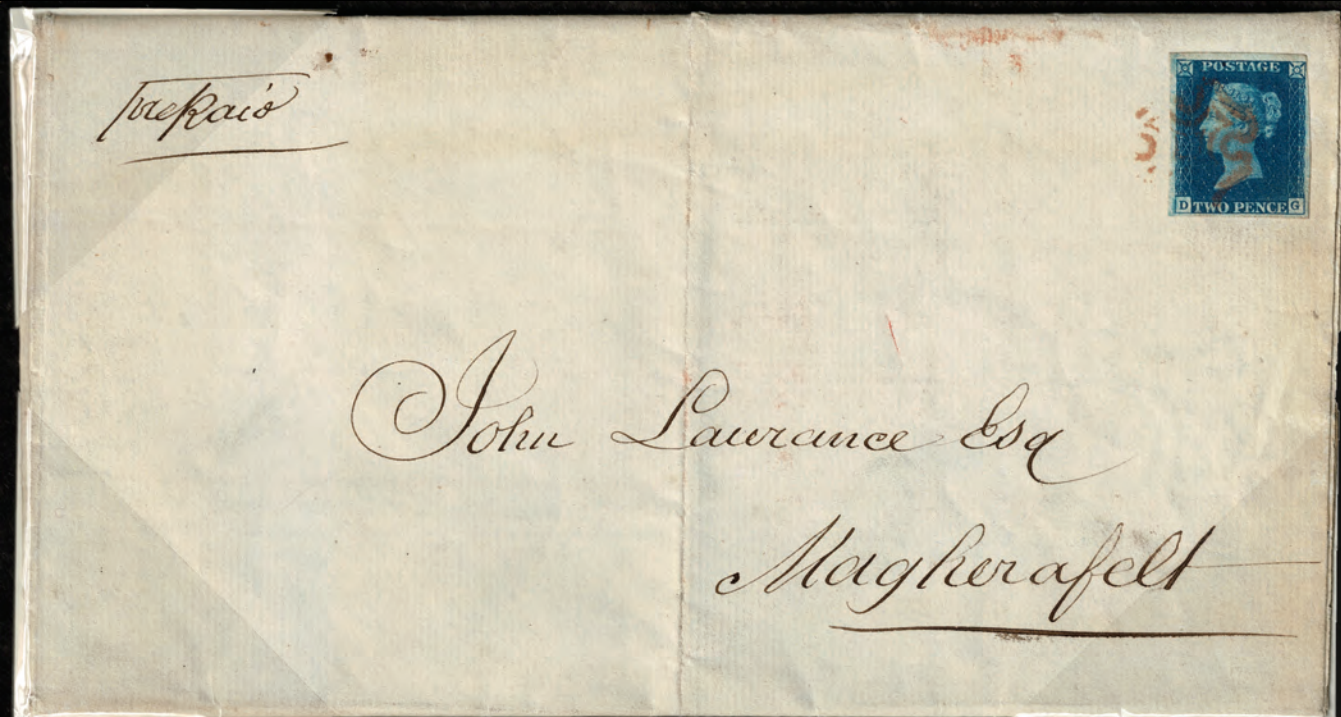 prepaid
POSTAGE
D TWO PENCE G
John Lawrance Esq
Magherafelt